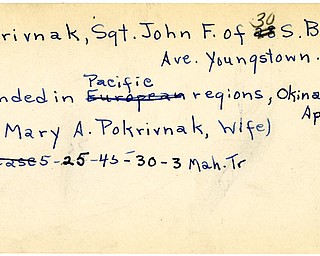 rivnak, Sgt. John F. of 30 S. B
Ave. Youngstown.
nded in European Pacific regions, Okina
Ap
Mary A. Pokrivnak, Wife)
ease 5-25-45-30-3 Mah. Tr